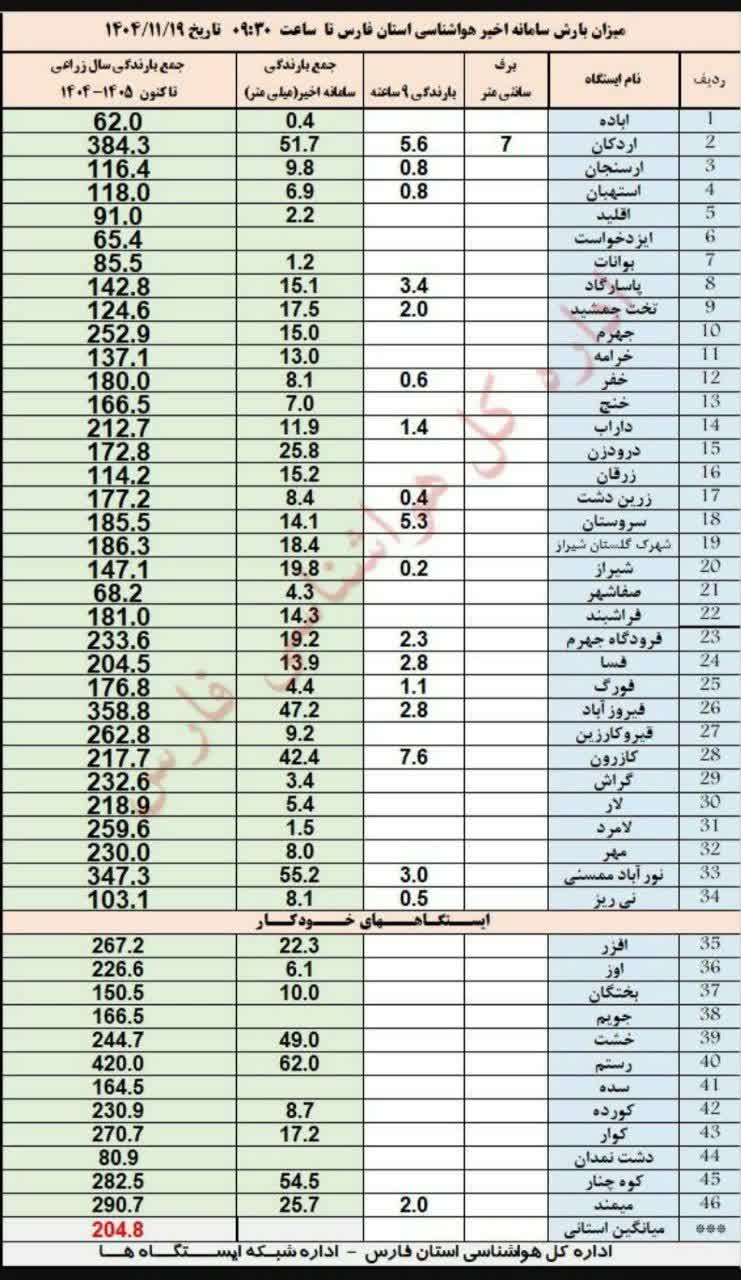 میزان بارش سامانه اخیر هواشناسی استان فارس تا ساعت ۰۹:۳۰ تاریخ ۱۴۰۴/۱۱/۱۹
ردیف نام ایستگاه برف سانتی متر بارندگی ۹ ساعته جمع بارندگی سامانه اخیر(میلی متر) جمع بارندگی سال زراعی ۱۴۰۵-۱۴۰۴ تا کنون
1 اباده 0.4 62.0
2 اردکان 7 5.6 51.7 384.3
3 ارسنجان 0.8 9.8 116.4
4 استهبان 0.8 6.9 118.0
5 اقلید 2.2 91.0
6 ایزدخواست 65.4
7 بوانات 1.2 85.5
8 پاسارگاد 3.4 15.1 142.8
9 تخت جمشید 2.0 17.5 124.6
10 جهرم 15.0 252.9
11 خرامه 13.0 137.1
12 خفر 0.6 8.1 180.0
13 خنج 7.0 166.5
14 داراب 1.4 11.9 212.7
15 درودزن 25.8 172.8
16 زرقان 15.2 114.2
17 زرین دشت 0.4 8.4 177.2
18 سروستان 5.3 14.1 185.5
19 شهرک گلستان شیراز 18.4 186.3
20 شیراز 0.2 19.8 147.1
21 صفاشهر 4.3 68.2
22 فراشبند 14.3 181.0
23 فرودگاه جهرم 2.3 19.2 233.6
24 فسا 2.8 13.9 204.5
25 فورگ 1.1 4.4 176.8
26 فیروزآباد 2.8 47.2 358.8
27 قیروکارزین 9.2 262.8
28 کازرون 7.6 42.4 217.7
29 گراش 3.4 232.6
30 لار 5.4 218.9
31 لامرد 1.5 259.6
32 مهر 8.0 230.0
33 نورآباد ممسنی 3.0 55.2 347.3
34 نی ریز 0.5 8.1 103.1
ایستگاههای خودکار
35 افزر 22.3 267.2
36 اوز 6.1 226.6
37 بختگان 10.0 150.5
38 جویم 166.5
39 خشت 49.0 244.7
40 رستم 62.0 420.0
41 سده 164.5
42 کورده 8.7 230.9
43 کوار 17.2 270.7
44 دشت نمدان 80.9
45 کوه چنار 54.5 282.5
46 میمند 2.0 25.7 290.7
*** میانگین استانی 204.8
اداره کل هواشناسی استان فارس - اداره شبکه ایستگاه ها
اداره کل هواشناسی فارس